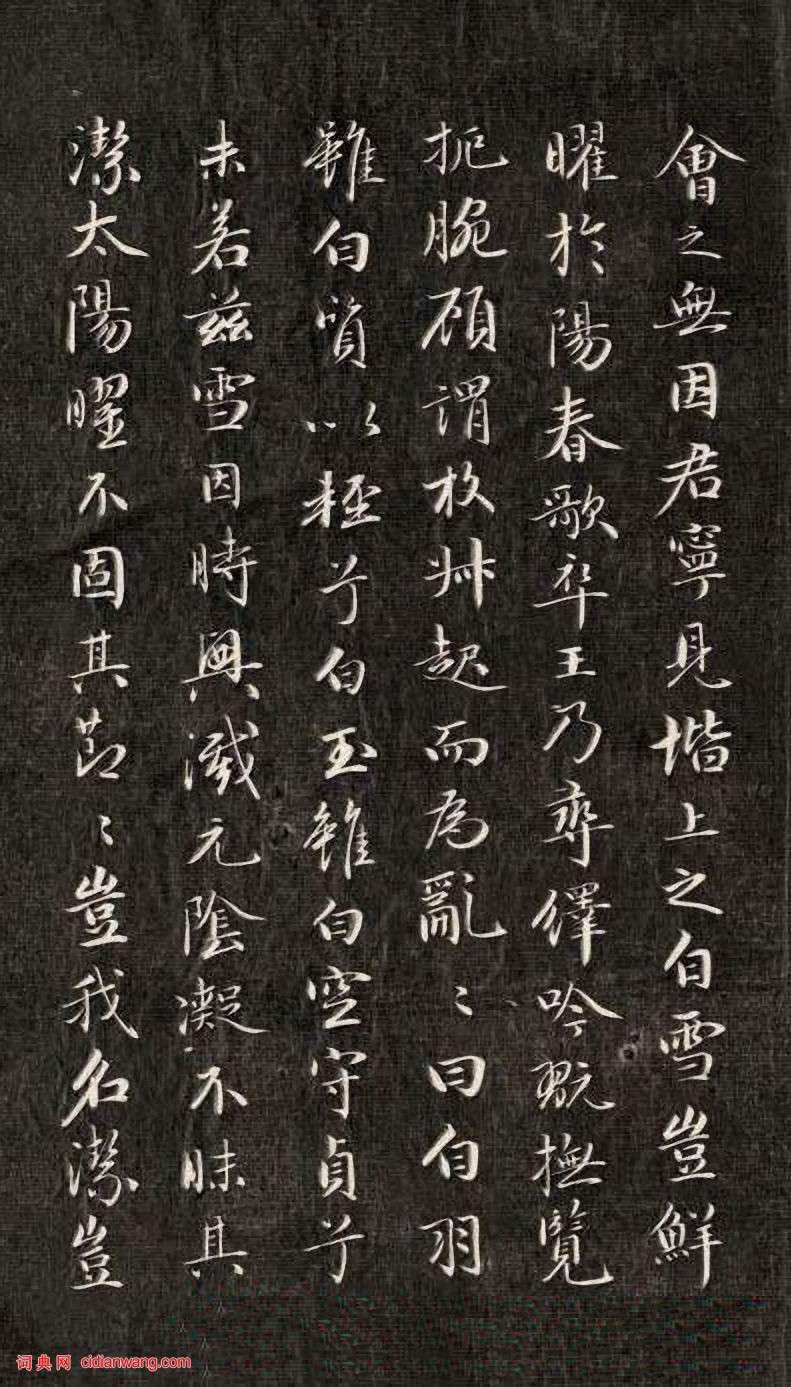 會之無因君寧見堦上之白雪豈鮮
曜於陽春歌卒王乃尋繹吟翫撫覽
扼腕顧謂枚叔起而為亂〻曰白羽
雖白質以輕兮白玉雖白空守貞兮
未若兹雪因時興滅元陰凝不昧其
潔太陽曜不固其節〻豈我名潔豈
词典网 cidianwang.com